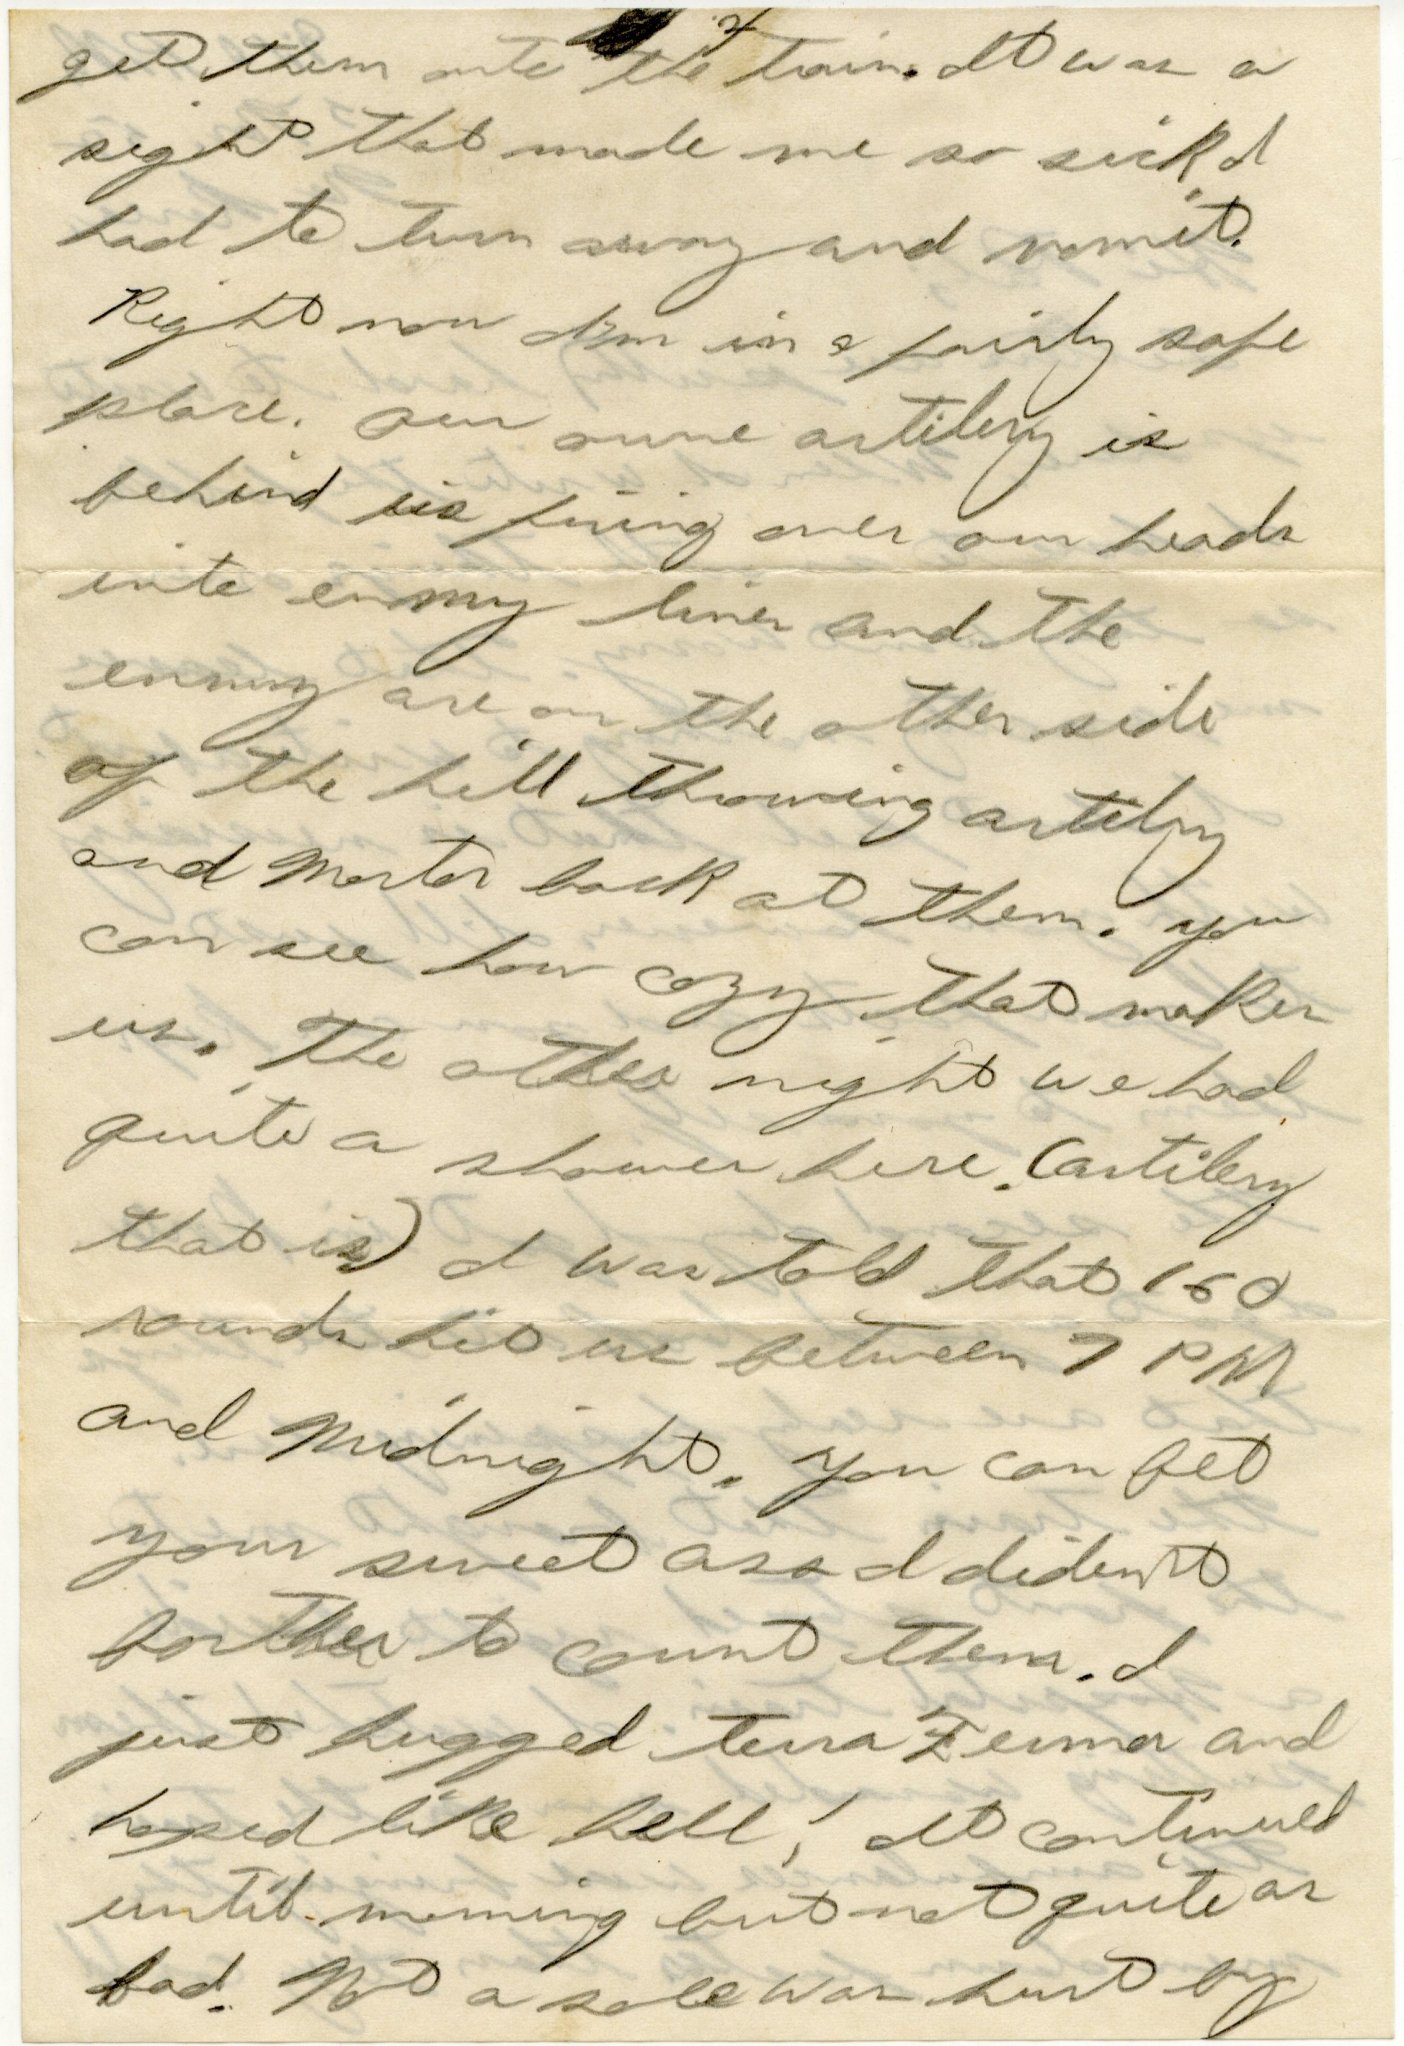 get them onto the train. It was a
sight that made me so sick I
had to turn away and vomit.
Right now I'm in a fairly safe
place. Our owne artilery is
behind us firing over our heads
into enemy lines and the
enemy are on the other side
of the hill throwing artilery
and Mortar back at them. you
can see how cozy that makes
us. The other night we had
quite a shower here. (artilery
that is) I was told that 160
rounds hit us between 7 PM
and Midnight. you can bet
your sweet ass I diden't
borther to count them. I
just hugged terra Ferma and
hoped like hell! It continued
until morning but not quite as
bad. Not a sole was hurt by